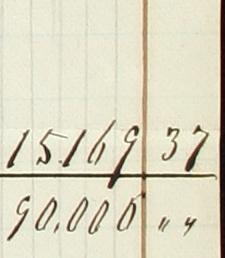 15.169 37
90.000 " "